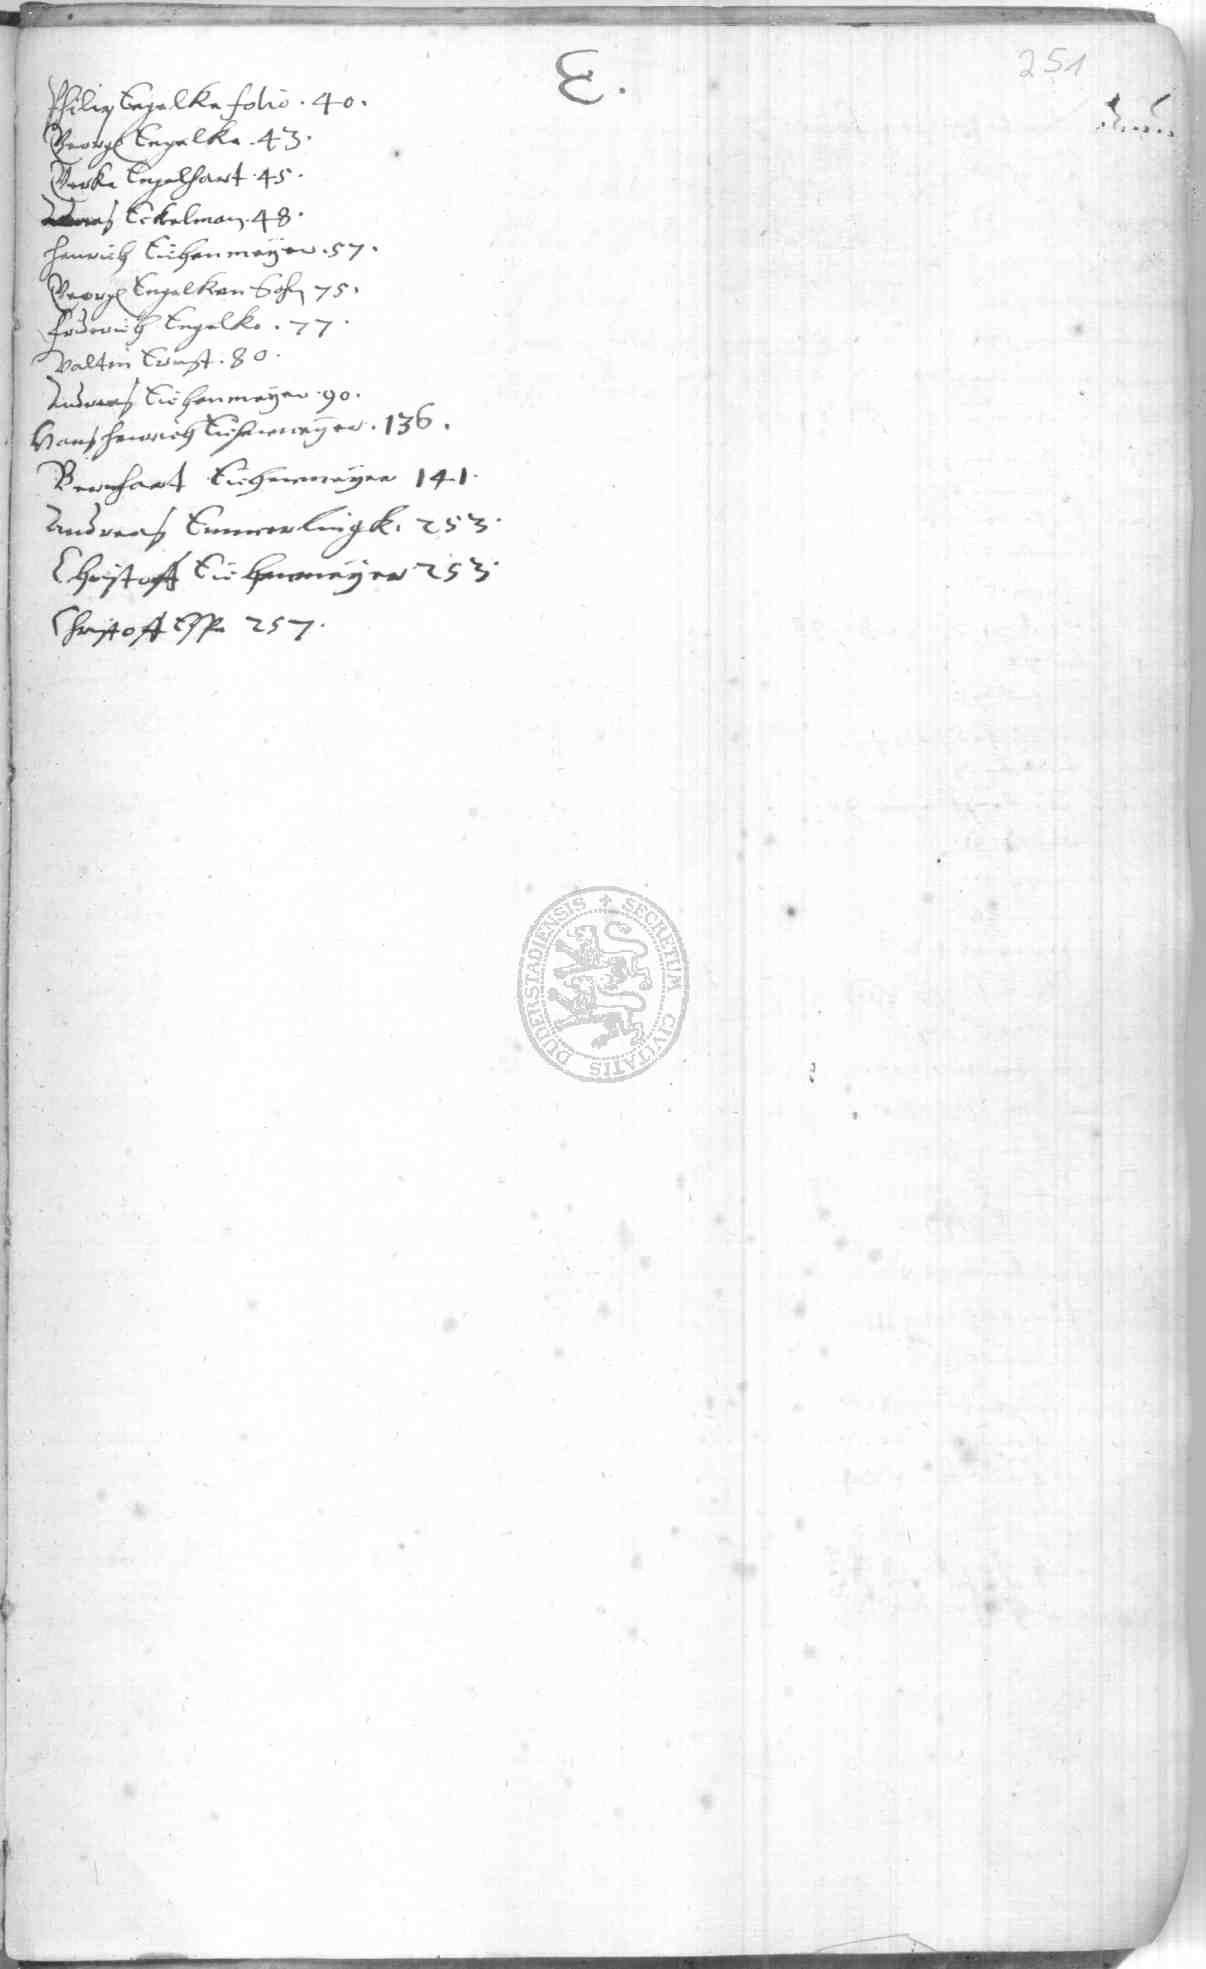 E.
251
Philip Engelke folio . 40 .
Georgh Engelke . 43 .
Gerke Engelhart . 45 .
Eckelman . 48 .
Henrich Eichenmeÿer . 57 .
Georgh Engelken Sohn 75 .
Friderich Engelke . 77 .
Valtin Ernst . 80 .
Andreas Eichenmeÿer . 90 .
Hans Henrich Eichenmeÿer . 136 .
Bernhart Eichenmeÿer 141 .
Andreas Emmerlingk . 253 .
Christoff Eichenmeÿer 253 .
Christoff 257 .
SECRETUM CIVITATIS DUDERSTADIENSIS